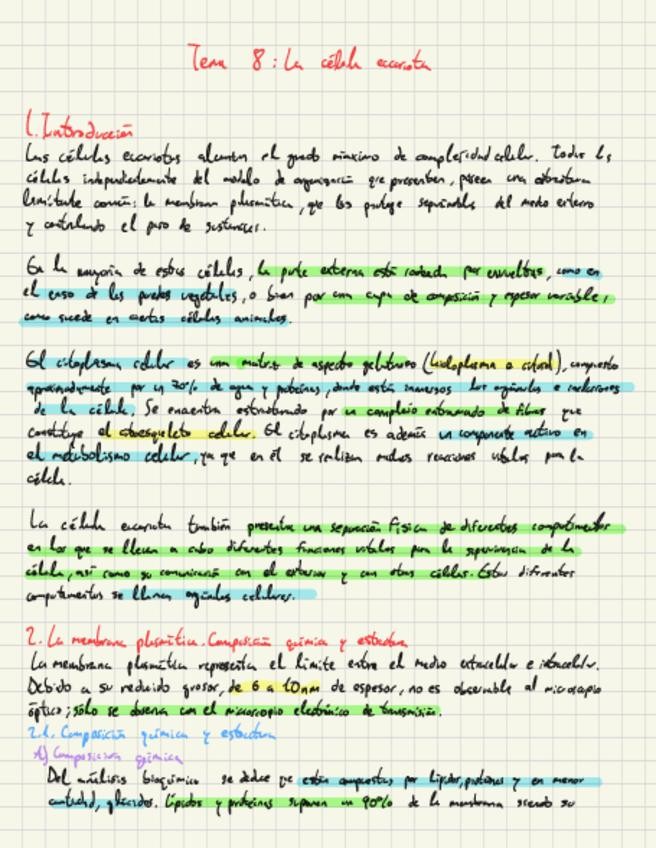 Tema 8: La célula eucariota
1. Introducción
Las células eucariotas alcanzan el grado máximo de complejidad celular. Todas las
células independientemente del modelo de organización que presenten, poseen una estructura
limitante común: la membrana plasmática, que las protege separándolas del medio externo
y controlando el paso de sustancias.
En la mayoría de estas células, la parte externa está rodeada por envueltas, como en
el caso de las paredes vegetales, o bien por una capa de composición y espesor variable,
como sucede en ciertas células animales.
El citoplasma celular es una matriz de aspecto gelatinoso (hialoplasma o citosol), compuesto
aproximadamente por un 70% de agua y proteínas, donde están inmersos los orgánulos e inclusiones
de la célula. Se encuentra estructurado por un complejo entramado de fibras que
constituye el citoesqueleto celular. El citoplasma es además un componente activo en
el metabolismo celular, ya que en él se realizan muchas reacciones vitales para la
célula.
La célula eucariota también presenta una separación física de diferentes compartimentos
en los que se llevan a cabo diferentes funciones vitales para la supervivencia de la
célula, así como su comunicación con el exterior y con otras células. Estos diferentes
compartimentos se llaman orgánulos celulares.
2. La membrana plasmática. Composición química y estructura
La membrana plasmática representa el límite entre el medio extracelular e intracelular.
Debido a su reducido grosor, de 6 a 10nm de espesor, no es observable al microscopio
óptico; sólo se observa con el microscopio electrónico de transmisión.
2.1. Composición química y estructura
A) Composición química
Del análisis bioquímico se deduce que están compuestas por lípidos, proteínas y en menor
cantidad, glúcidos. Lípidos y proteínas suponen un 90% de la membrana siendo su